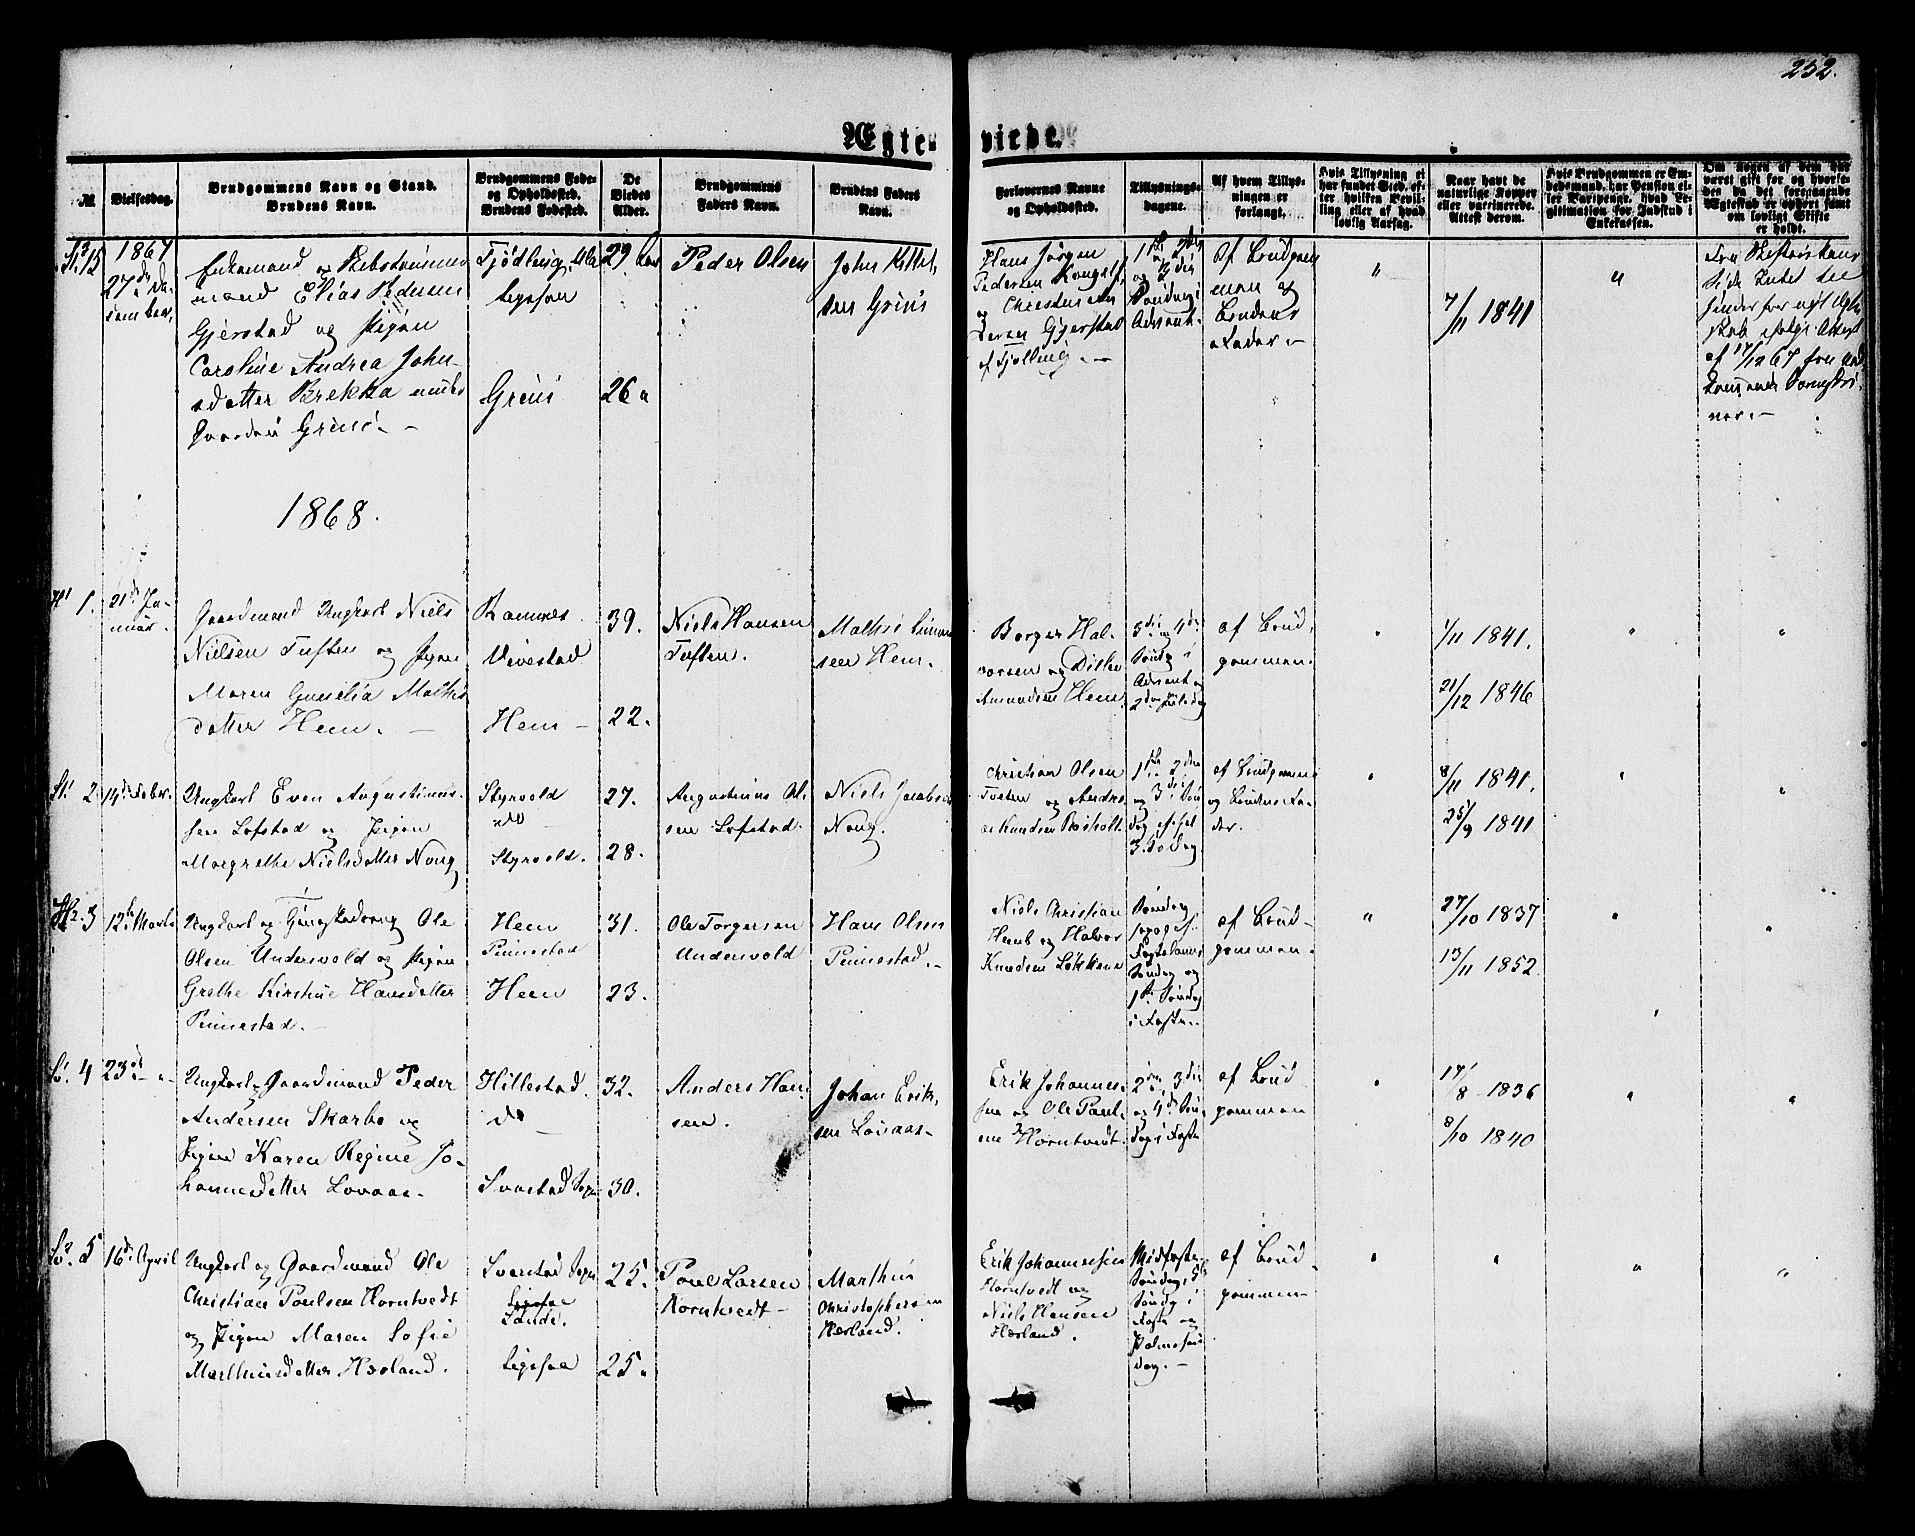 252.
Ægte-
viede.
№
Vielsesdag.
Brudgommens Navn og Stand.
Brudens Navn.
Brudgommens Føde-
og Opholdssted.
Brudens Fødested.
De
Viedes
Alder.
Brudgommens
Faders Navn.
Brudens Faders
Navn.
Forlovernes Navne
og Opholdssted.
Tillysnings-
dagene.
Af hvem Tillys-
ningen er
forlangt.
Hvis Tillysning ei
har fundet Sted, ef-
ter hvilken Bevil-
ling eller af hvad
lovlig Aarsag.
Naar havt de
naturlige Kopper
eller vaccinerede.
Attest derom.
Hvis Brudgommen er Em-
bedsmand, har Pension el-
ler Vartpenge, hvad Le-
gitimation for Indskud i
Enkekassen.
Om nogen af dem har
været gift før, og hvorle-
des da det foregaaende
Ægteskab er ophørt samt
om lovligt Skifte
er holdt.
15
1867
27de De-
cember
Enkemand og
mand Elias Pedersen
Gjerstad og Pigen
Caroline Andrea Johns-
datter Brekka
Grini. -
Tjødling
Grini
29
26
Peder Olsen
John Kittel-
sen Grini
Hans Jørgen
Pedersen
og Christen
Gjerstad
af Tjølling. -
1ste 2den
og 3die
Søndag i
Advent.
Af Brudgom-
men og
Brudens
Fader. -
"
7/11 1841
"
af 17/12 67 fra
1868.
1.
21de Ja-
nuar.
Gaardmand Ungkarl Niels
Nielsen Tuften og Pigen
Maren Gunelia Mathis
datter Hem. -
Ramnes
Vivestad
Hem -
39.
22.
Niels Hansen
Tuften.
Mathis Simon
sen Hem.
Borger Hal-
vorsen og
Amundsen Hem.
3die og 4de
Søndag i
Advent og
2den Juledag
af Brud-
gommen.
"
1/11 1841.
21/12 1846
"
"
2.
14de Febr.
Ungkarl Even Augustinus-
sen Lofstad og Pigen
Margrethe Nielsdatter Noug
Styrvold
do
Styrvold.
27.
28.
Augustinus Ol-
sen Lofstad.
Niels Jacobsen
Noug.
Christian Olsen
Tveten og Andre-
as Knudsen
1ste 2den
og 3die Søn-
dag
af Brudgommen
og Brudens Fa-
der.
"
8/11 1841.
25/9 1841
"
"
3
12te Marts
Ungkarl og Ole
Olsen Undersvold og Pigen
Grethe Kirstine Hansdatter
Pinnestad. -
Hem
Pinnestad
Hem
31.
23.
Ole Torgersen
Undersvold
Hans Olsen
Pinnestad. -
Niels Christian
Hemb og Halvor
Knudsen
Søndag
Fastelavns
Søndag og
1ste Søndag
i Faste. -
af Brud-
gommen.
"
27/10 1837
13/11 1852.
"
"
4
23de -"-
Ungkarl og Gaardmand Peder
Andersen Skarbo og
Pigen Karen Regine Jo-
hannesdatter Lovaas. -
Hillestad
do
Svarstad Sogn
32.
30.
Anders Han-
sen.
Johan Erik-
sen Lovaas-
Erik Johannes-
sen og Ole Paul-
sen Horntvedt.
2den, 3die
og 4de Søn-
dag i Faste
af Brud
gommen
"
17/8 1836
8/10 1840
"
"
5
16de April
Ungkarl og Gaardmand Ole
Christian Poulsen Horntvedt
og Pigen Maren Sofie
Marthinsdatter Hæsland.
Svarstad Sogn
Sande.
25.
25.
Poul Larsen
Horntvedt -
Marthin
Christophersen
Hæsland.
Erik Johannessen
Horntvedt og
Niels Hansen
Hæsland.
Midfaste
Søndag, 5te
Søndag i
Faste og
Palmesøn-
dag. -
af Brud
gommen-
"
"
"
"